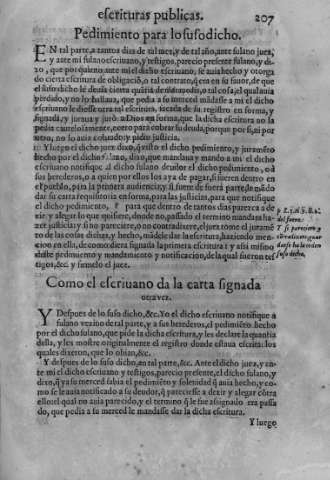 escrituras publicas.
207
Pedimiento para lo susodicho.
EN tal parte, a tantos dias de tal mes, y de tal año, ante fulano juez,
y ante mi fulano escriuano, y testigos, parecio presente fulano, y di-
xo, que por quãto ante mi el dicho escriuano, se auia hecho y otorga
do cierta escritura de obligació, o tal contrato, q̃ era en su fauor, de que
el suso dicho le deuia cierta quãtia de o tal cosa, el qual auia
perdido, y no lo hallaua, que pedia a su merced mãdasse a mi el dicho
escriuano le diesse otra tal escritura, sacada de su registro en forma, y
signada, y juraua y juró a Dios en forma, que la dicha escritura no la
pedia cautelosamente, etc. para cobrar su deuda, porque por si, ni por
otro, no lo auia cobrado: y pidio justicia.
Y luego el dicho juez dixo, q̃ visto el dicho pedimiento, y juramẽto
hecho por el dicho fulano, dixo, que mandaua y mando a mi el dicho
escriuano notifique al dicho fulano deudor el dicho pedimiento, o a
sus herederos, o a quien por ellos los aya de pagar, si fueren dentro en
el pueblo, para la primera audiencia, y si fuere de fuera parte, le mãdo
dar su carta requisitoria en forma, para las justicias, para que notifique
el dicho pedimiento, para que dentro de tantos dias parezca a de
zir y alegar lo que quisiere, donde no, passado el termino mandara ha-
zer justicia: y si no pareciere, o no contradixere, el juez tome el juramẽ
to de las cosas dichas, y hecho, mãdele dar la escritura, haziendo men-
cion en ella, de como diera signada la primera escritura: y assi mismo
dalle pedimiento y mandamiento y notificacion, de la qual fueron tes
tigos, &c. y firmelo el juez.
del fuero.
Y si pareciere y
guar
dasse ha la orden
suso dicho.
Como el escriuano da la carta signada
otra vez.
Y Despues de lo suso dicho, &c. Yo el dicho escriuano notifique a
fulano vezino de tal parte, y a sus herederos, el pedimiẽto hecho
por el dicho fulano, que pide la dicha escritura, y les declare la quantia
della, y les mostre originalmente el registro donde estaua escrita: los
quales dixeron, que lo oian, &c.
Y despues de lo suso dicho, en tal parte, &c. Ante el dicho juez, y an-
te mi el dicho escriuano y testigos, parecio presente, el dicho fulano, y
dixo, q̃ ya su merced sabia el pedimiẽto y solenidad q̃ auia hecho, y co-
mo se le auia notificado a su deudor, q̃ pareciesse a dezir y alegar cõtra
ello: el qual no auia parecido, y el termino q̃ le fue assignado era passa
do, que pedia a su merced le mandasse dar la dicha escritura.
Y luego